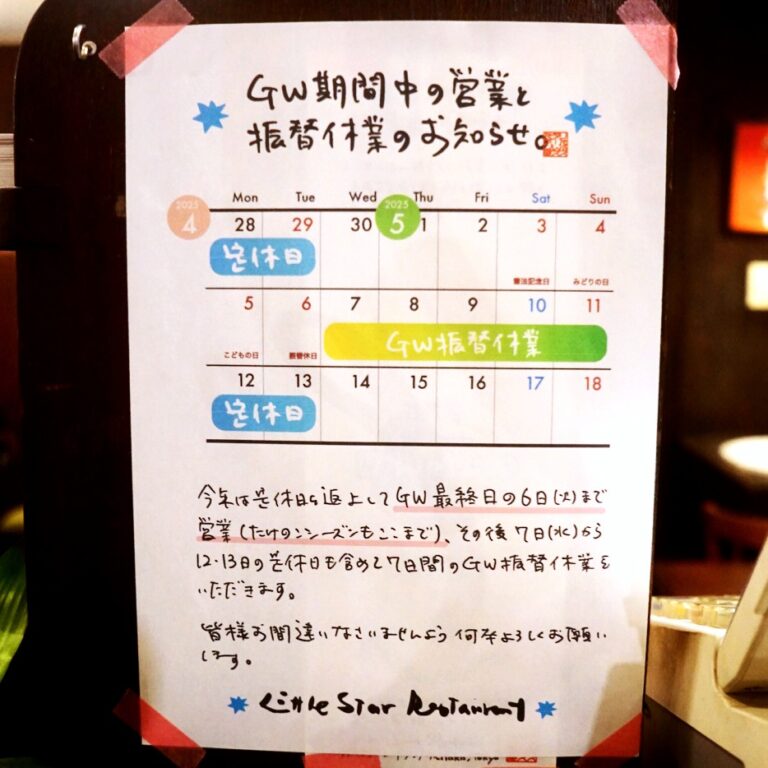 GW期間中の営業と
振替休業のお知らせ。
2025 4 Mon Tue Wed 2025 5 Thu Fri Sat Sun
28 29 30 1 2 3 4
定休日
憲法記念日 みどりの日
5 6 7 8 9 10 11
GW振替休業
こどもの日 振替休日
12 13 14 15 16 17 18
定休日
今年は定休日を返上してGW最終日の6日(火)まで
営業(たけのこシーズンもここまで)、その後7日(水)から
12・13日の定休日も含めて7日間のGW振替休業を
いただきます。
皆様お間違いなさいませんよう何卒よろしくお願い
します。
Little Star Restaurant